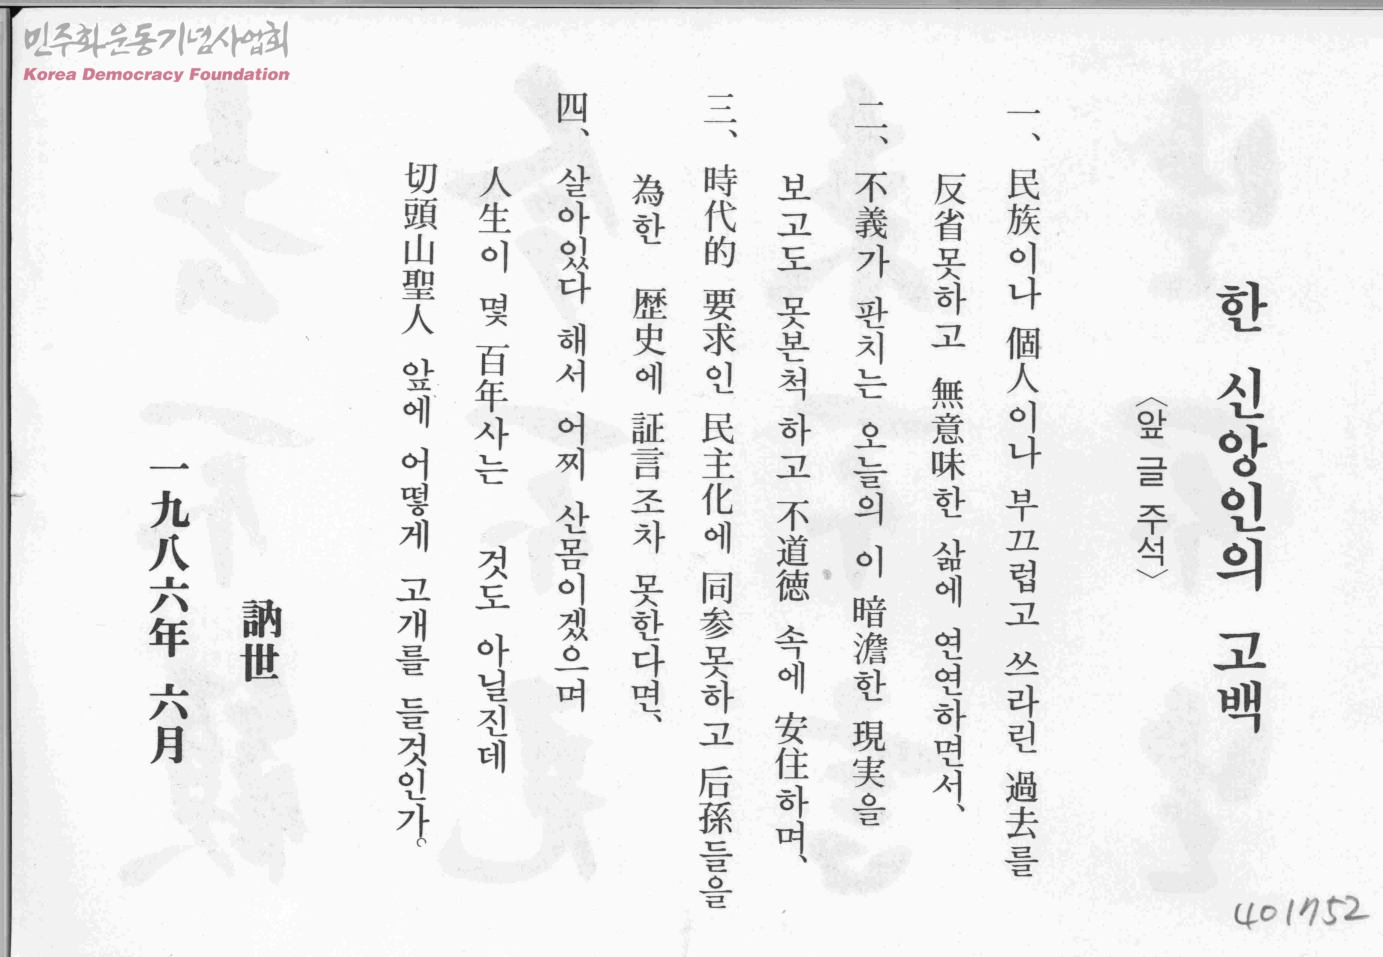 민주화운동기념사업회
Korea Democracy Foundation
한 신앙인의 고백
〈앞 글 주석〉
一、民族이나 個人이나 부끄럽고 쓰라린 過去를
反省못하고 無意味한 삶에 연연하면서、
二、不義가 판치는 오늘의 이 暗澹한 現実을
보고도 못본척 하고 不道徳 속에 安住하며、
三、時代的 要求인 民主化에 同参못하고 后孫들을
為한 歴史에 証言조차 못한다면、
四、살아있다 해서 어찌 산몸이겠으며
人生이 몇 百年사는 것도 아닐진데
切頭山聖人 앞에 어떻게 고개를 들것인가。
訥世
一九八六年 六月
401752